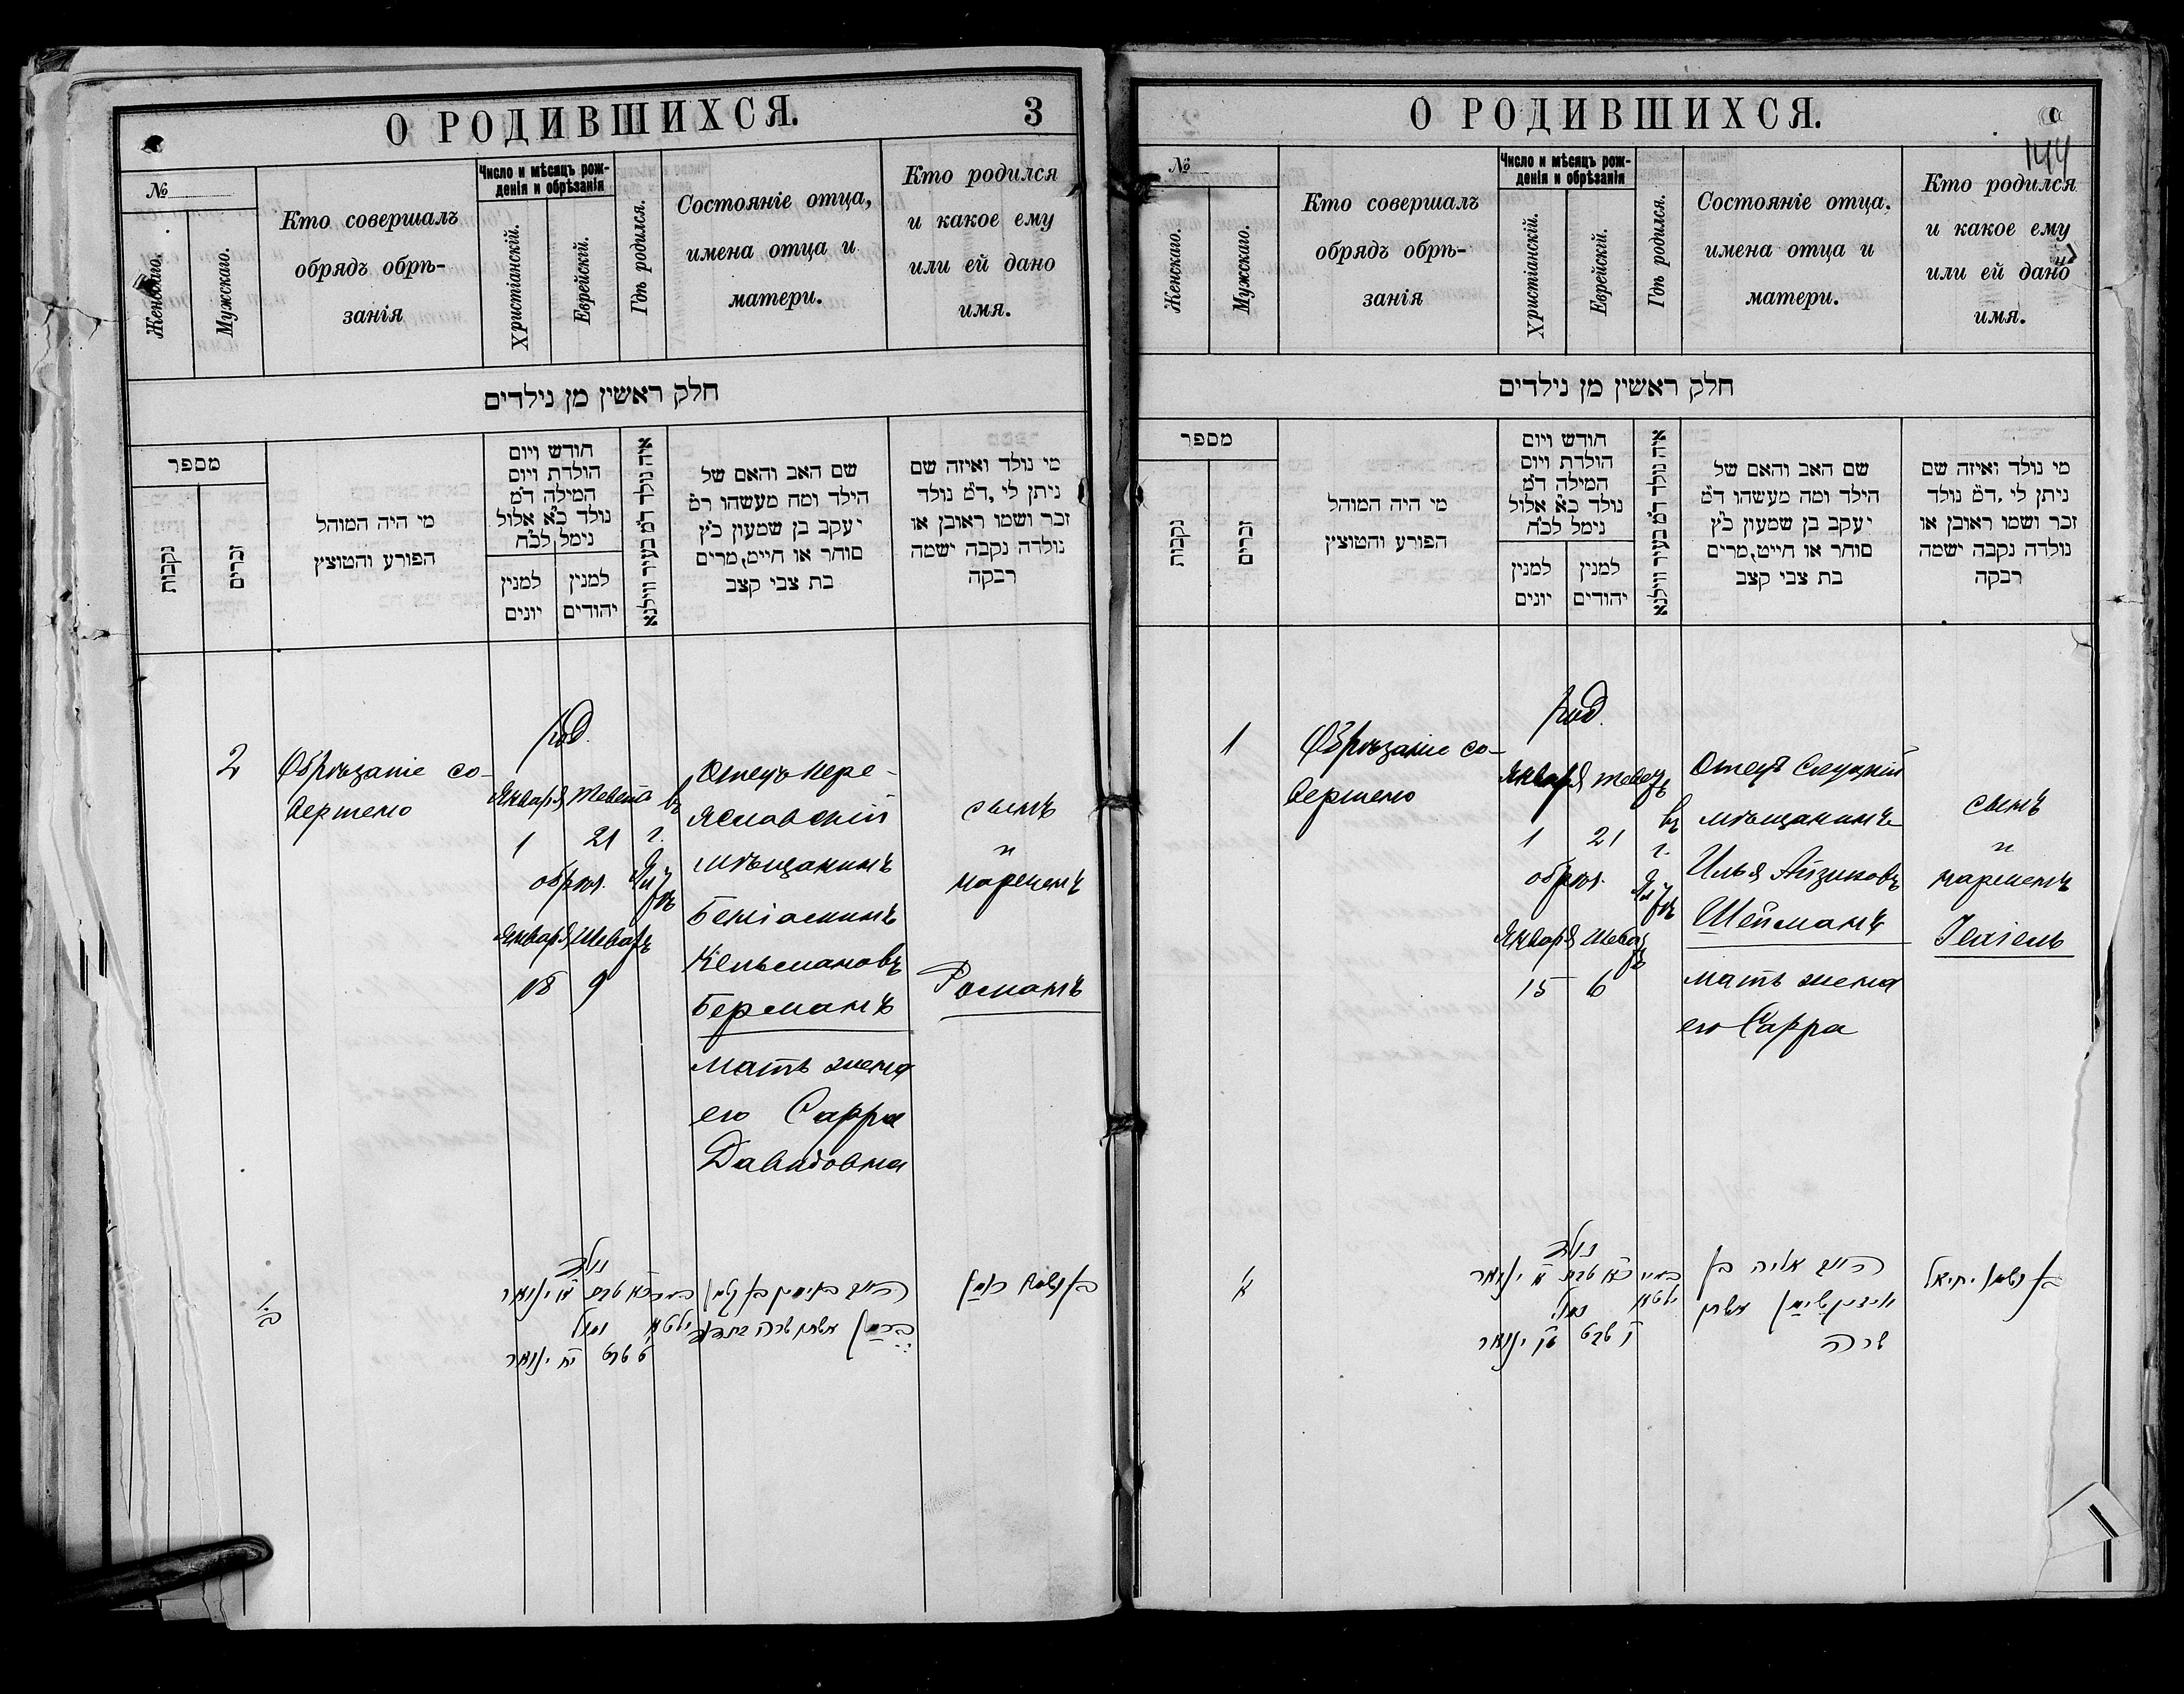 О РОДИВШИХСЯ.
3
№
Женскаго.
Мужскаго.
Кто совершалъ
обрядъ обрѣ-
занія
Число и мѣсяцъ рож-
денія и обрѣзанія
Христіанскій.
Еврейскій.
Гдѣ родился.
Состояніе отца,
имена отца и
матери.
Кто родился
и какое ему
или ей дано
имя.
חלק ראשין מן נילדים
מספר
נקבות
זכרים
מי היה המוהל
הפורע והטוצץ
חודש ויום
הולדת ויום
המילה ד״מ
נולד כ״א אלול
נימל לכ״ח
למנין
יונים
למנין
יהודים
איה נולד ד״מ בעיר ווילנא
שם האב והאם של
הילד ומה מעשהו ד״מ
יעקב בן שמעון כ״ץ
סוחר או חייט, מרים
בת צבי קצב
מי נולד ואיזה שם
ניתן לי, ד״מ נולד
זכר ושמו ראובן או
נולדה נקבה ישמה
רבקה
2
Обрѣзаніе со-
вершено
род.
Января Тевета
1 21
обрѣз.
Января Шеватъ
18 9
въ
г.
Отецъ Пере-
яславскій
мѣщанинъ
Беніаминъ
Кельмановъ
Берманъ
мать жена
его Сарра
Давидовна
сынъ
и
нареченъ
Романъ
ב
נולד
כ״א טבת א׳ ינואר
נמול
ט׳ שבט י״ח ינואר
О РОДИВШИХСЯ.
144
№
Женскаго.
Мужскаго.
Кто совершалъ
обрядъ обрѣ-
занія
Число и мѣсяцъ рож-
денія и обрѣзанія
Христіанскій.
Еврейскій.
Гдѣ родился.
Состояніе отца,
имена отца и
матери.
Кто родился
и какое ему
или ей дано
имя.
חלק ראשין מן נילדים
מספר
נקבות
זכרים
מי היה המוהל
הפורע והטוצץ
חודש ויום
הולדת ויום
המילה ד״מ
נולד כ״א אלול
נימל לכ״ח
למנין
יונים
למנין
יהודים
איה נולד ד״מ בעיר ווילנא
שם האב והאם של
הילד ומה מעשהו ד״מ
יעקב בן שמעון כ״ץ
סוחר או חייט, מרים
בת צבי קצב
מי נולד ואיזה שם
ניתן לי, ד״מ נולד
זכר ושמו ראובן או
נולדה נקבה ישמה
רבקה
1
Обрѣзаніе со-
вершено
род.
Января
1 21
обрѣз.
Января Шеватъ
15 6
въ
г.
Отецъ Слуцкій
мѣщанинъ
Илья Айзиковъ
Шейманъ
мать жена
его Сарра
сынъ
и
нареченъ
Іехіель
א
נולד
כ״א טבת א׳ ינואר
נמול
ו׳ שבט ט״ו ינואר
אליה בן
שיימאן אשתו
שרה
בן ושמו יחיאל